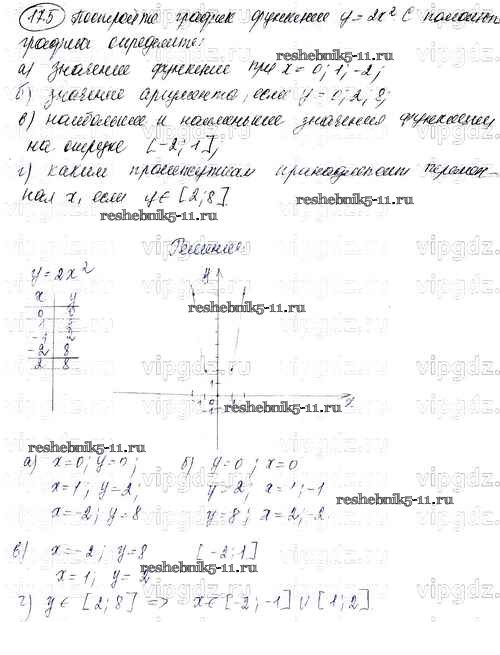 17.5 Постройте график функции y = 2x² С помощью
графика определите:
а) значение функции при x = 0; 1; -2;
б) значение аргумента, если y = 0; 2; 8;
в) наибольшее и наименьшее значения функции
на отрезке [-2; 1];
г) каким промежуткам принадлежит перемен-
ная x, если y ∈ [2; 8].
reshebnik5-11.ru
reshebnik5-11.ru
Решение
y = 2x²
x y
0 0
1 2
-1 2
-2 8
2 8
y
reshebnik5-11.ru
1
-1 0 1
-1
x
reshebnik5-11.ru
reshebnik5-11.ru
а) x = 0; y = 0; б) y = 0; x = 0
x = 1; y = 2; y = 2; x = 1; -1
reshebnik5-11.ru
x = -2; y = 8 y = 8; x = 2; -2.
в) x = -2; y = 8 [-2; 1]
reshebnik5-11.ru
x = 1; y = 2
г) y ∈ [2; 8] => x ∈ [-2; -1] ∪ [1; 2].
vipgdz